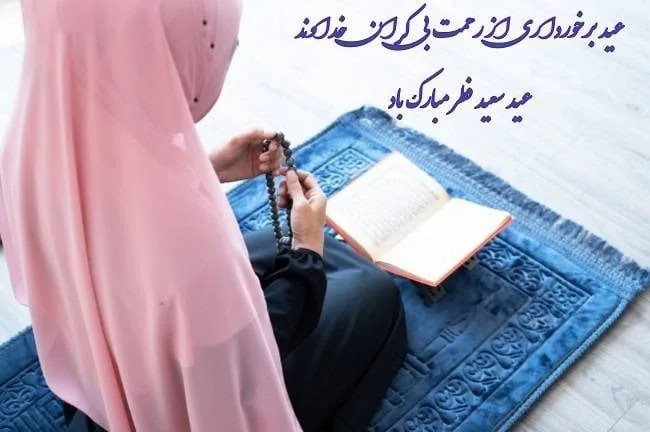 عید برخورداری از رحمت بی کران خداوند
عید سعید فطر مبارک باد